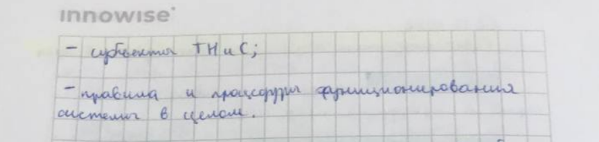 innowise
- субъекты ТНиС;
- правила и процедуры функционирования
системы в целом.